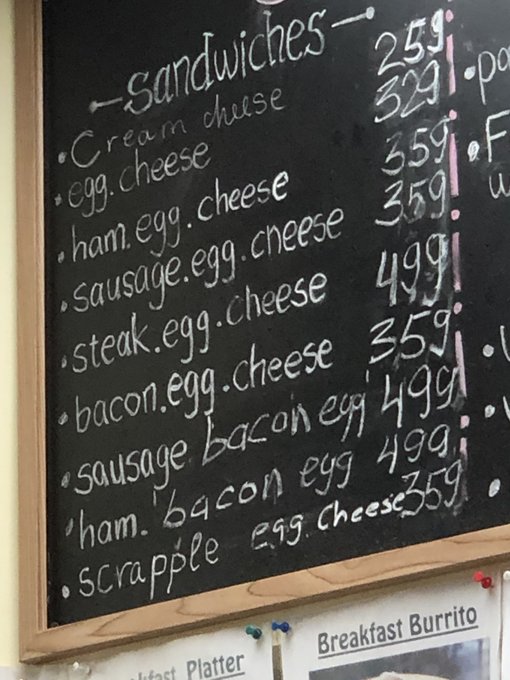 Sandwiches
• Cream cheese 259
• egg.cheese 329
• ham.egg.cheese 359
• sausage.egg.cheese 359
• steak.egg.cheese 499
• bacon.egg.cheese 359
• sausage bacon egg 499
• ham. bacon egg 499
• scrapple egg. cheese 359
Platter
Breakfast Burrito